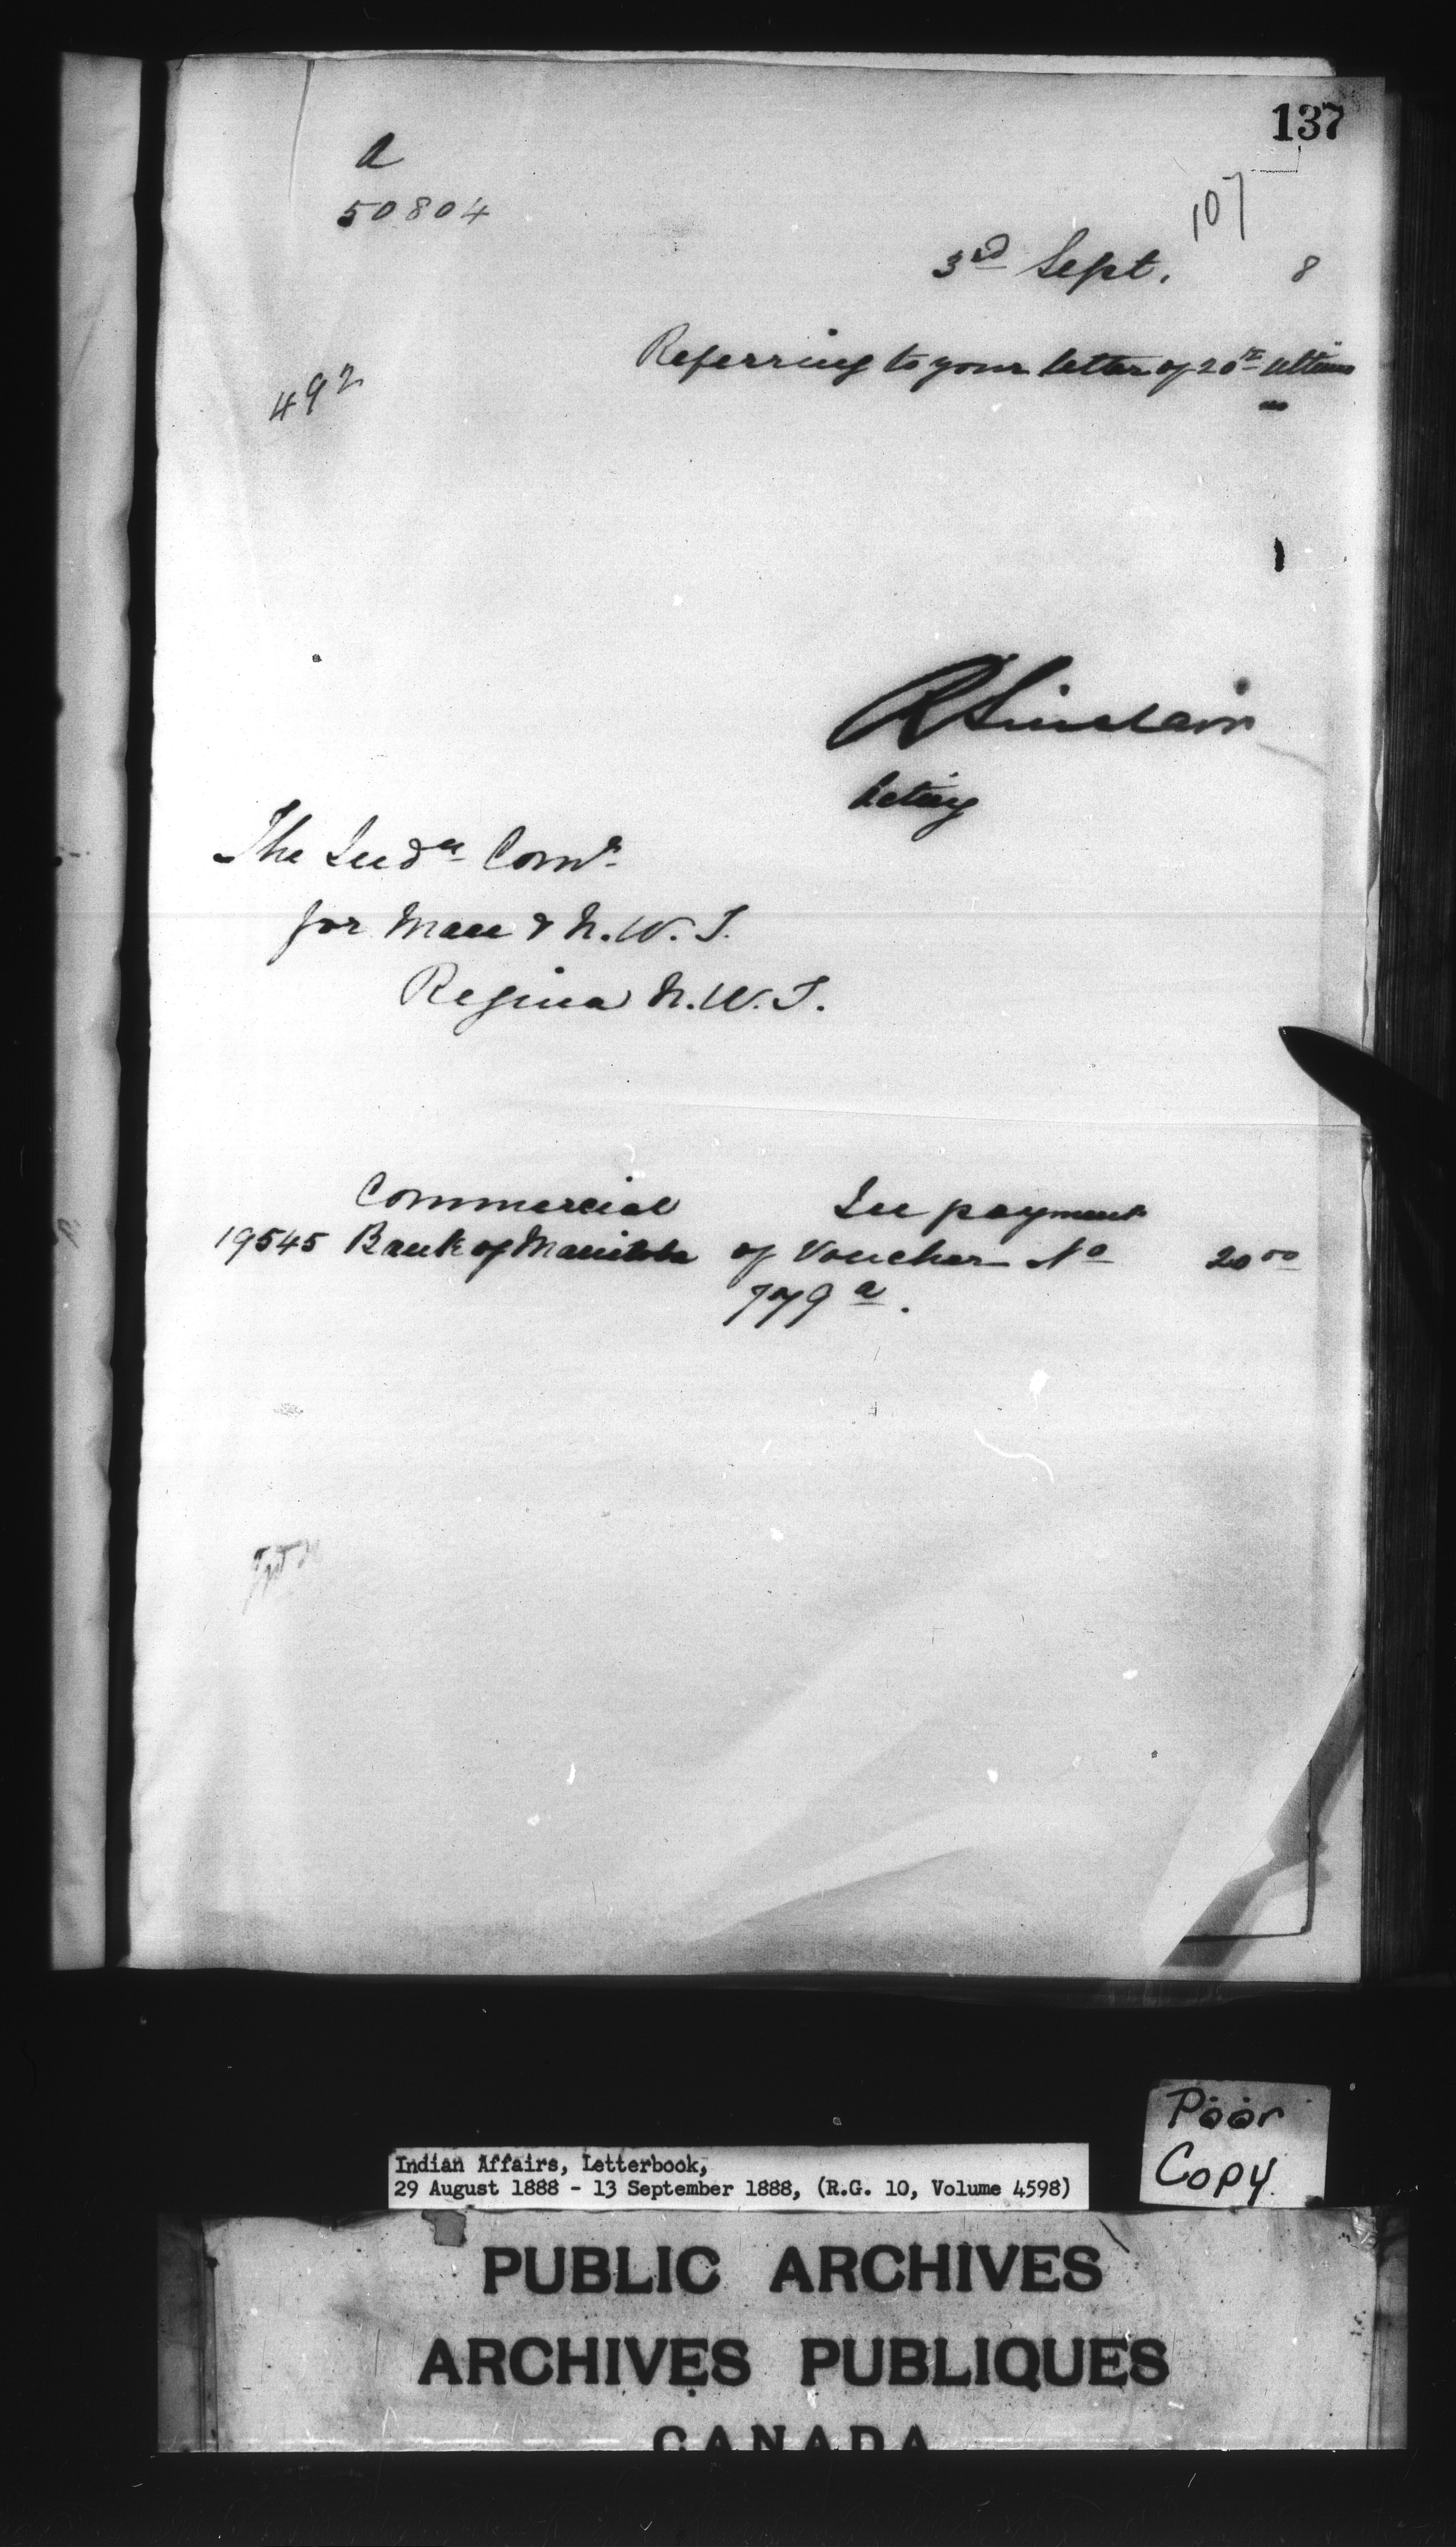 137
a
50804
107
3rd Sept. 8
492
Referring to your letter of 20th Ultimo
RSinclair
Acting
The Indn Comr
for Man & N.W.T.
Regina N.W.T.
Commercial In payment
19545 Bank of Manitoba of Voucher No 20 00
779 a.
Poor
Copy.
Indian Affairs, Letterbook,
29 August 1888 - 13 September 1888, (R.G. 10, Volume 4598)
PUBLIC ARCHIVES
ARCHIVES PUBLIQUES
CANADA